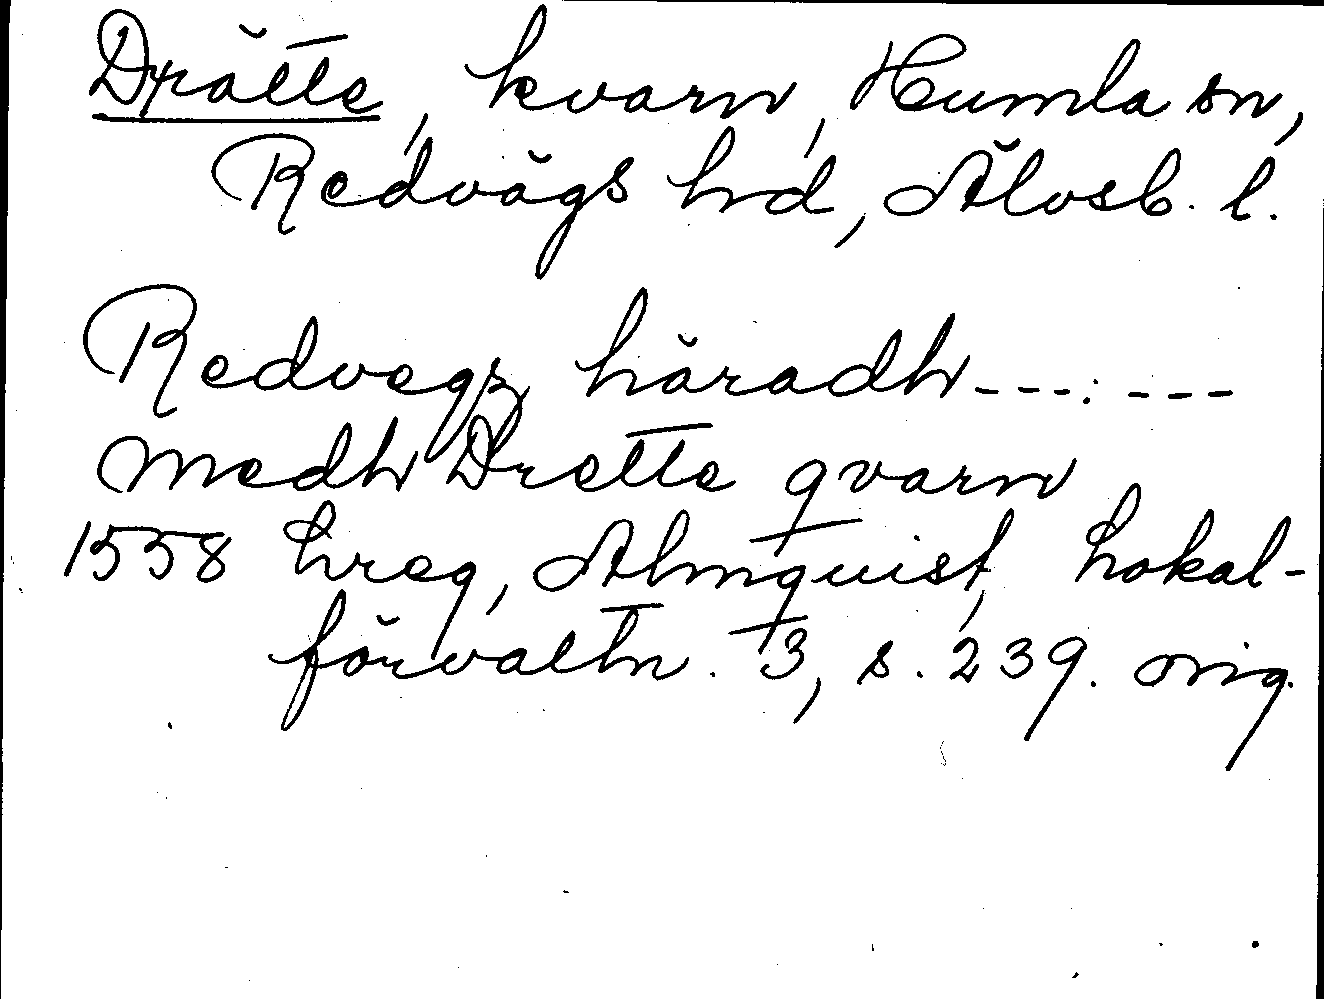 Drätte, kvarn, Humla sn,
Redvägs hd, Älvsb. l.
Redvegz häradh ---:---
medh Drette qvarn
1558 hreg, Almquist, Lokal-
förvaltn. 3, s. 239. orig.